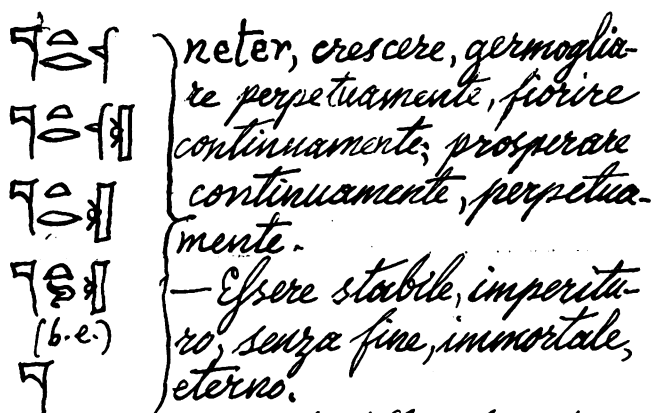 neter, crescere, germoglia-
re perpetuamente, fiorire
continuamente; prosperare
continuamente, perpetua-
mente.
— Essere stabile, imperitu-
(b.e.) ro, senza fine, immortale,
eterno.